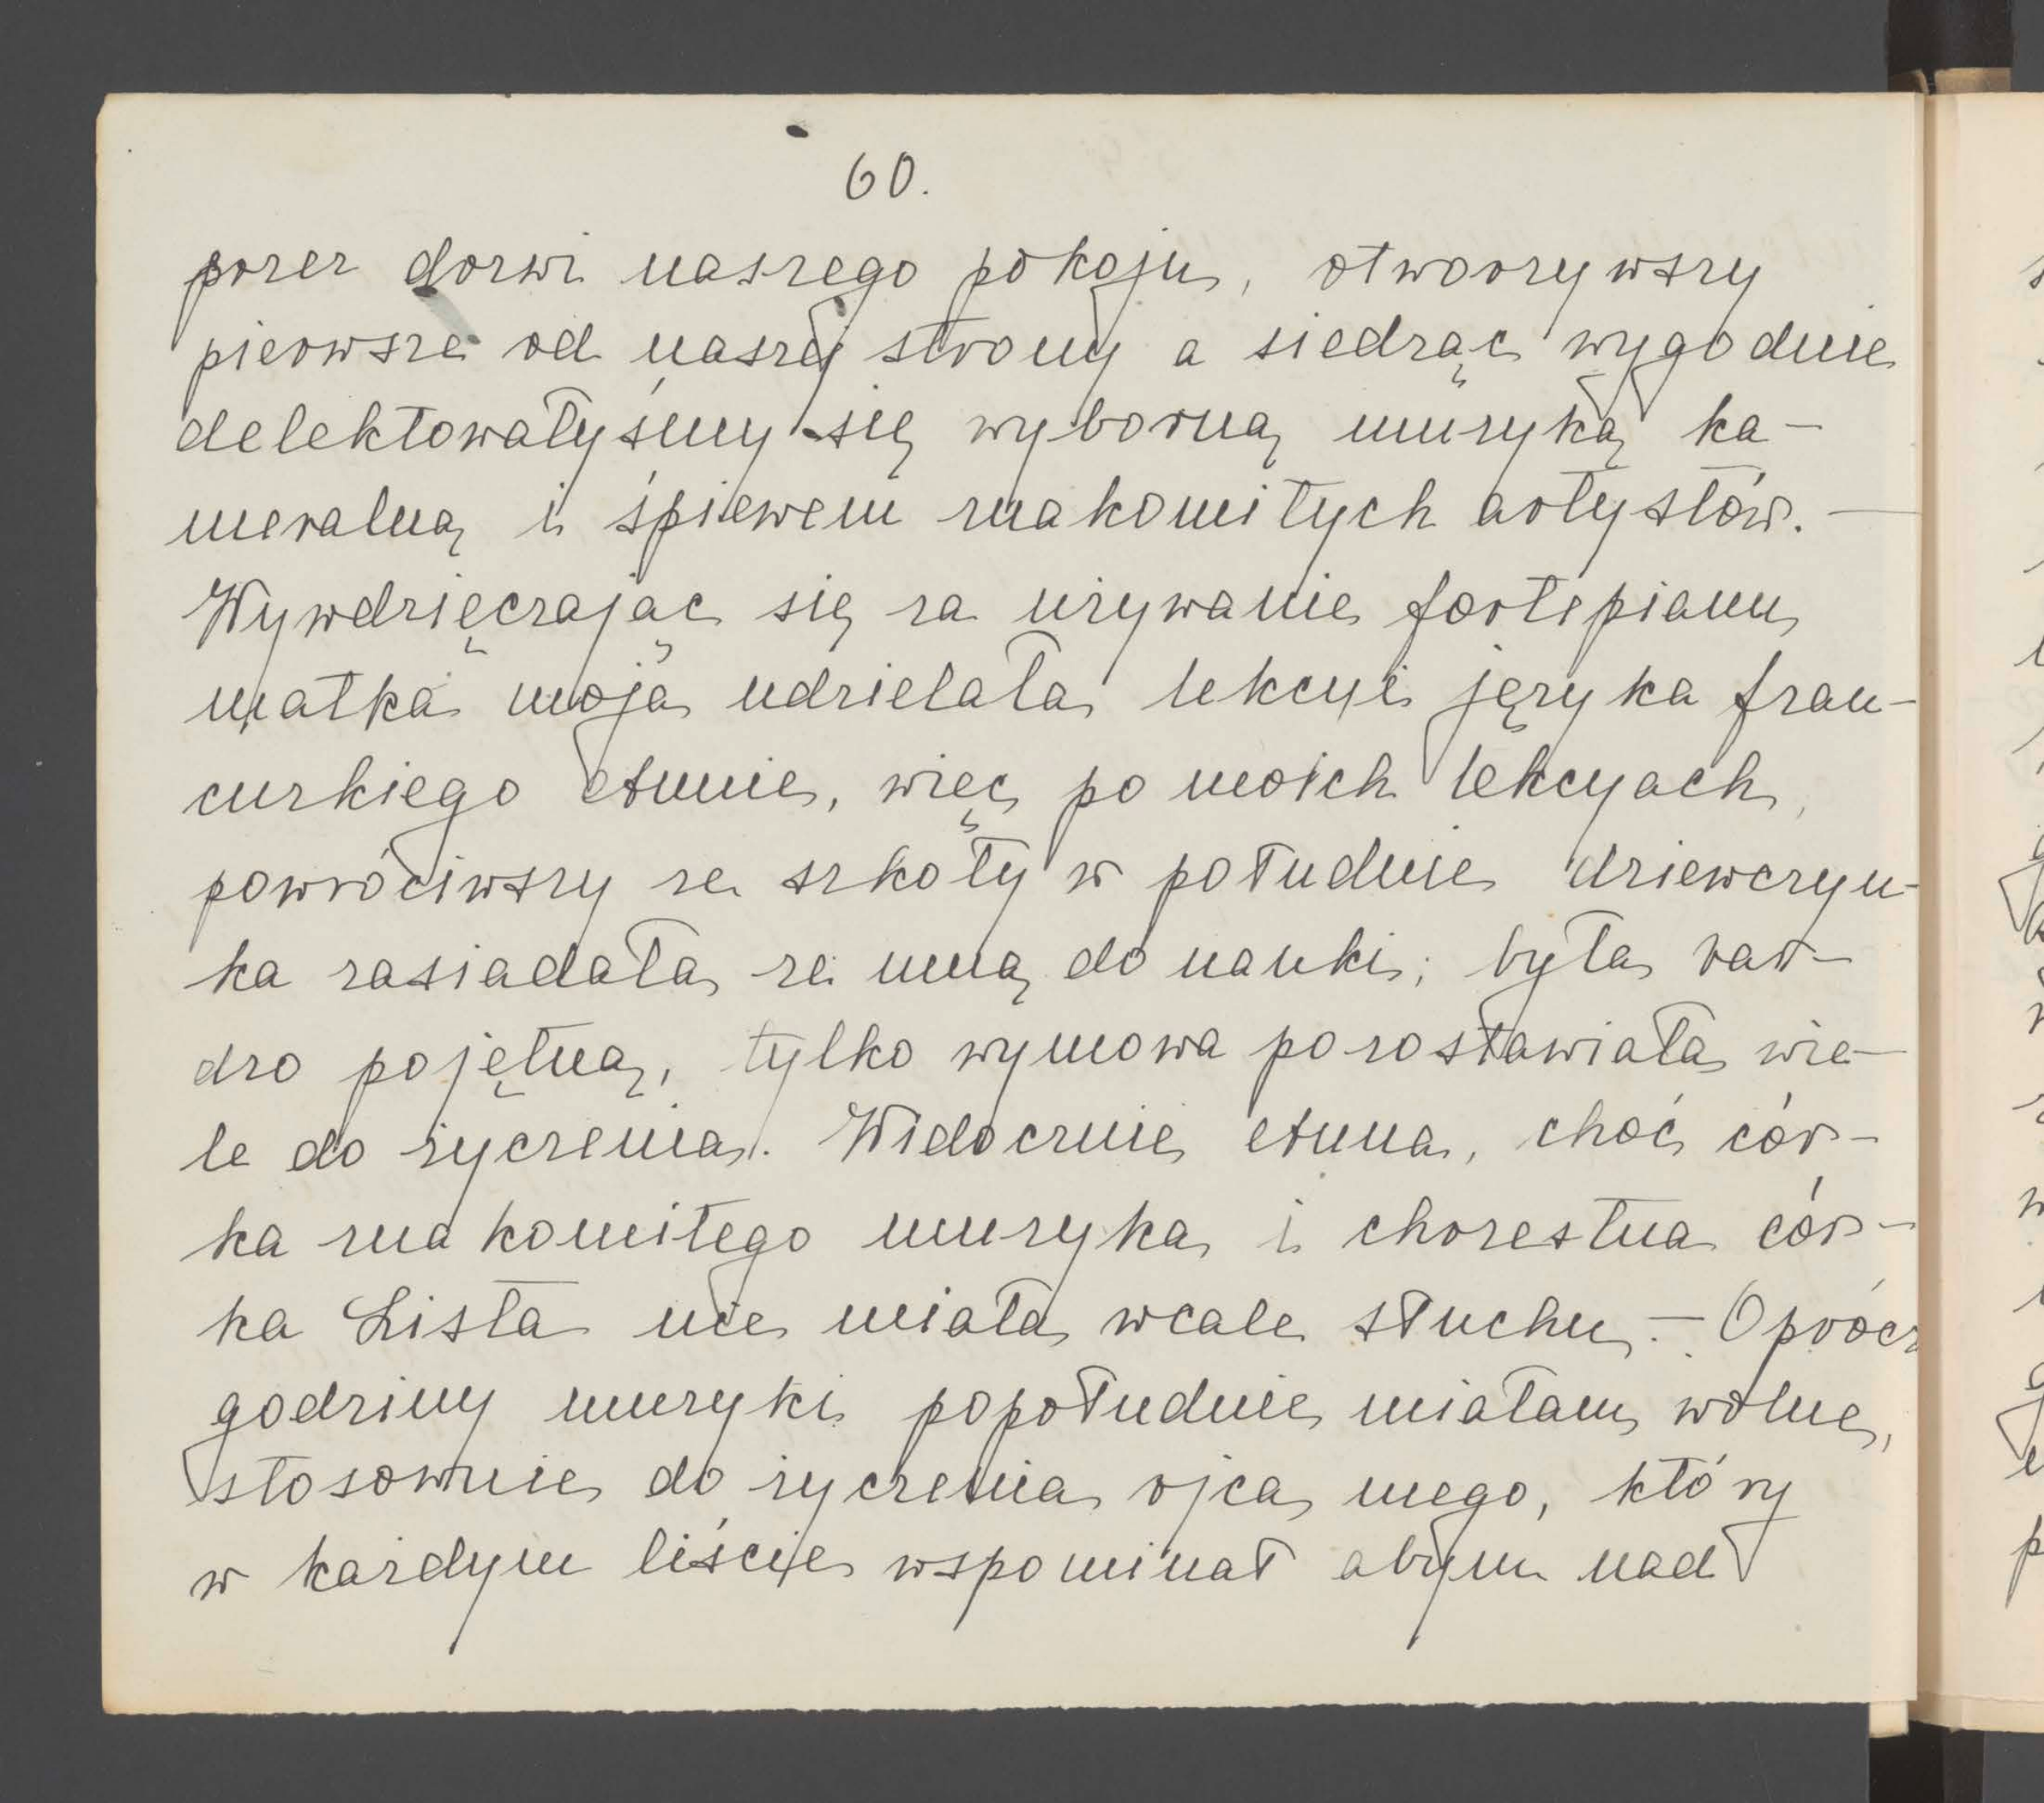 60.
przez drzwi naszego pokoju, otworzywszy
pierwsze od naszej strony a siedząc wygodnie
delektowałyśmy się wyborną muzyką ka-
meralną i śpiewem znakomitych artystów. —
Wywdzięczając się za używanie fortepianu
matka moja udzielała lekcyi języka fran-
cuzkiego Annie, więc po moich lekcyach,
powróciwszy ze szkoły w południe dziewczyn-
ka zasiadała ze mną do nauki; była bar-
dzo pojętną, tylko wymowa pozostawiała wie-
le do życzenia. Widocznie Anna, choć cór-
ka znakomitego muzyka i chrzestna cór-
ka Lista nie miała wcale słuchu. — Oprócz
godziny muzyki popołudnie miałam wolne,
stosownie do życzenia ojca mego, który
w każdym liście wspominał abym nad